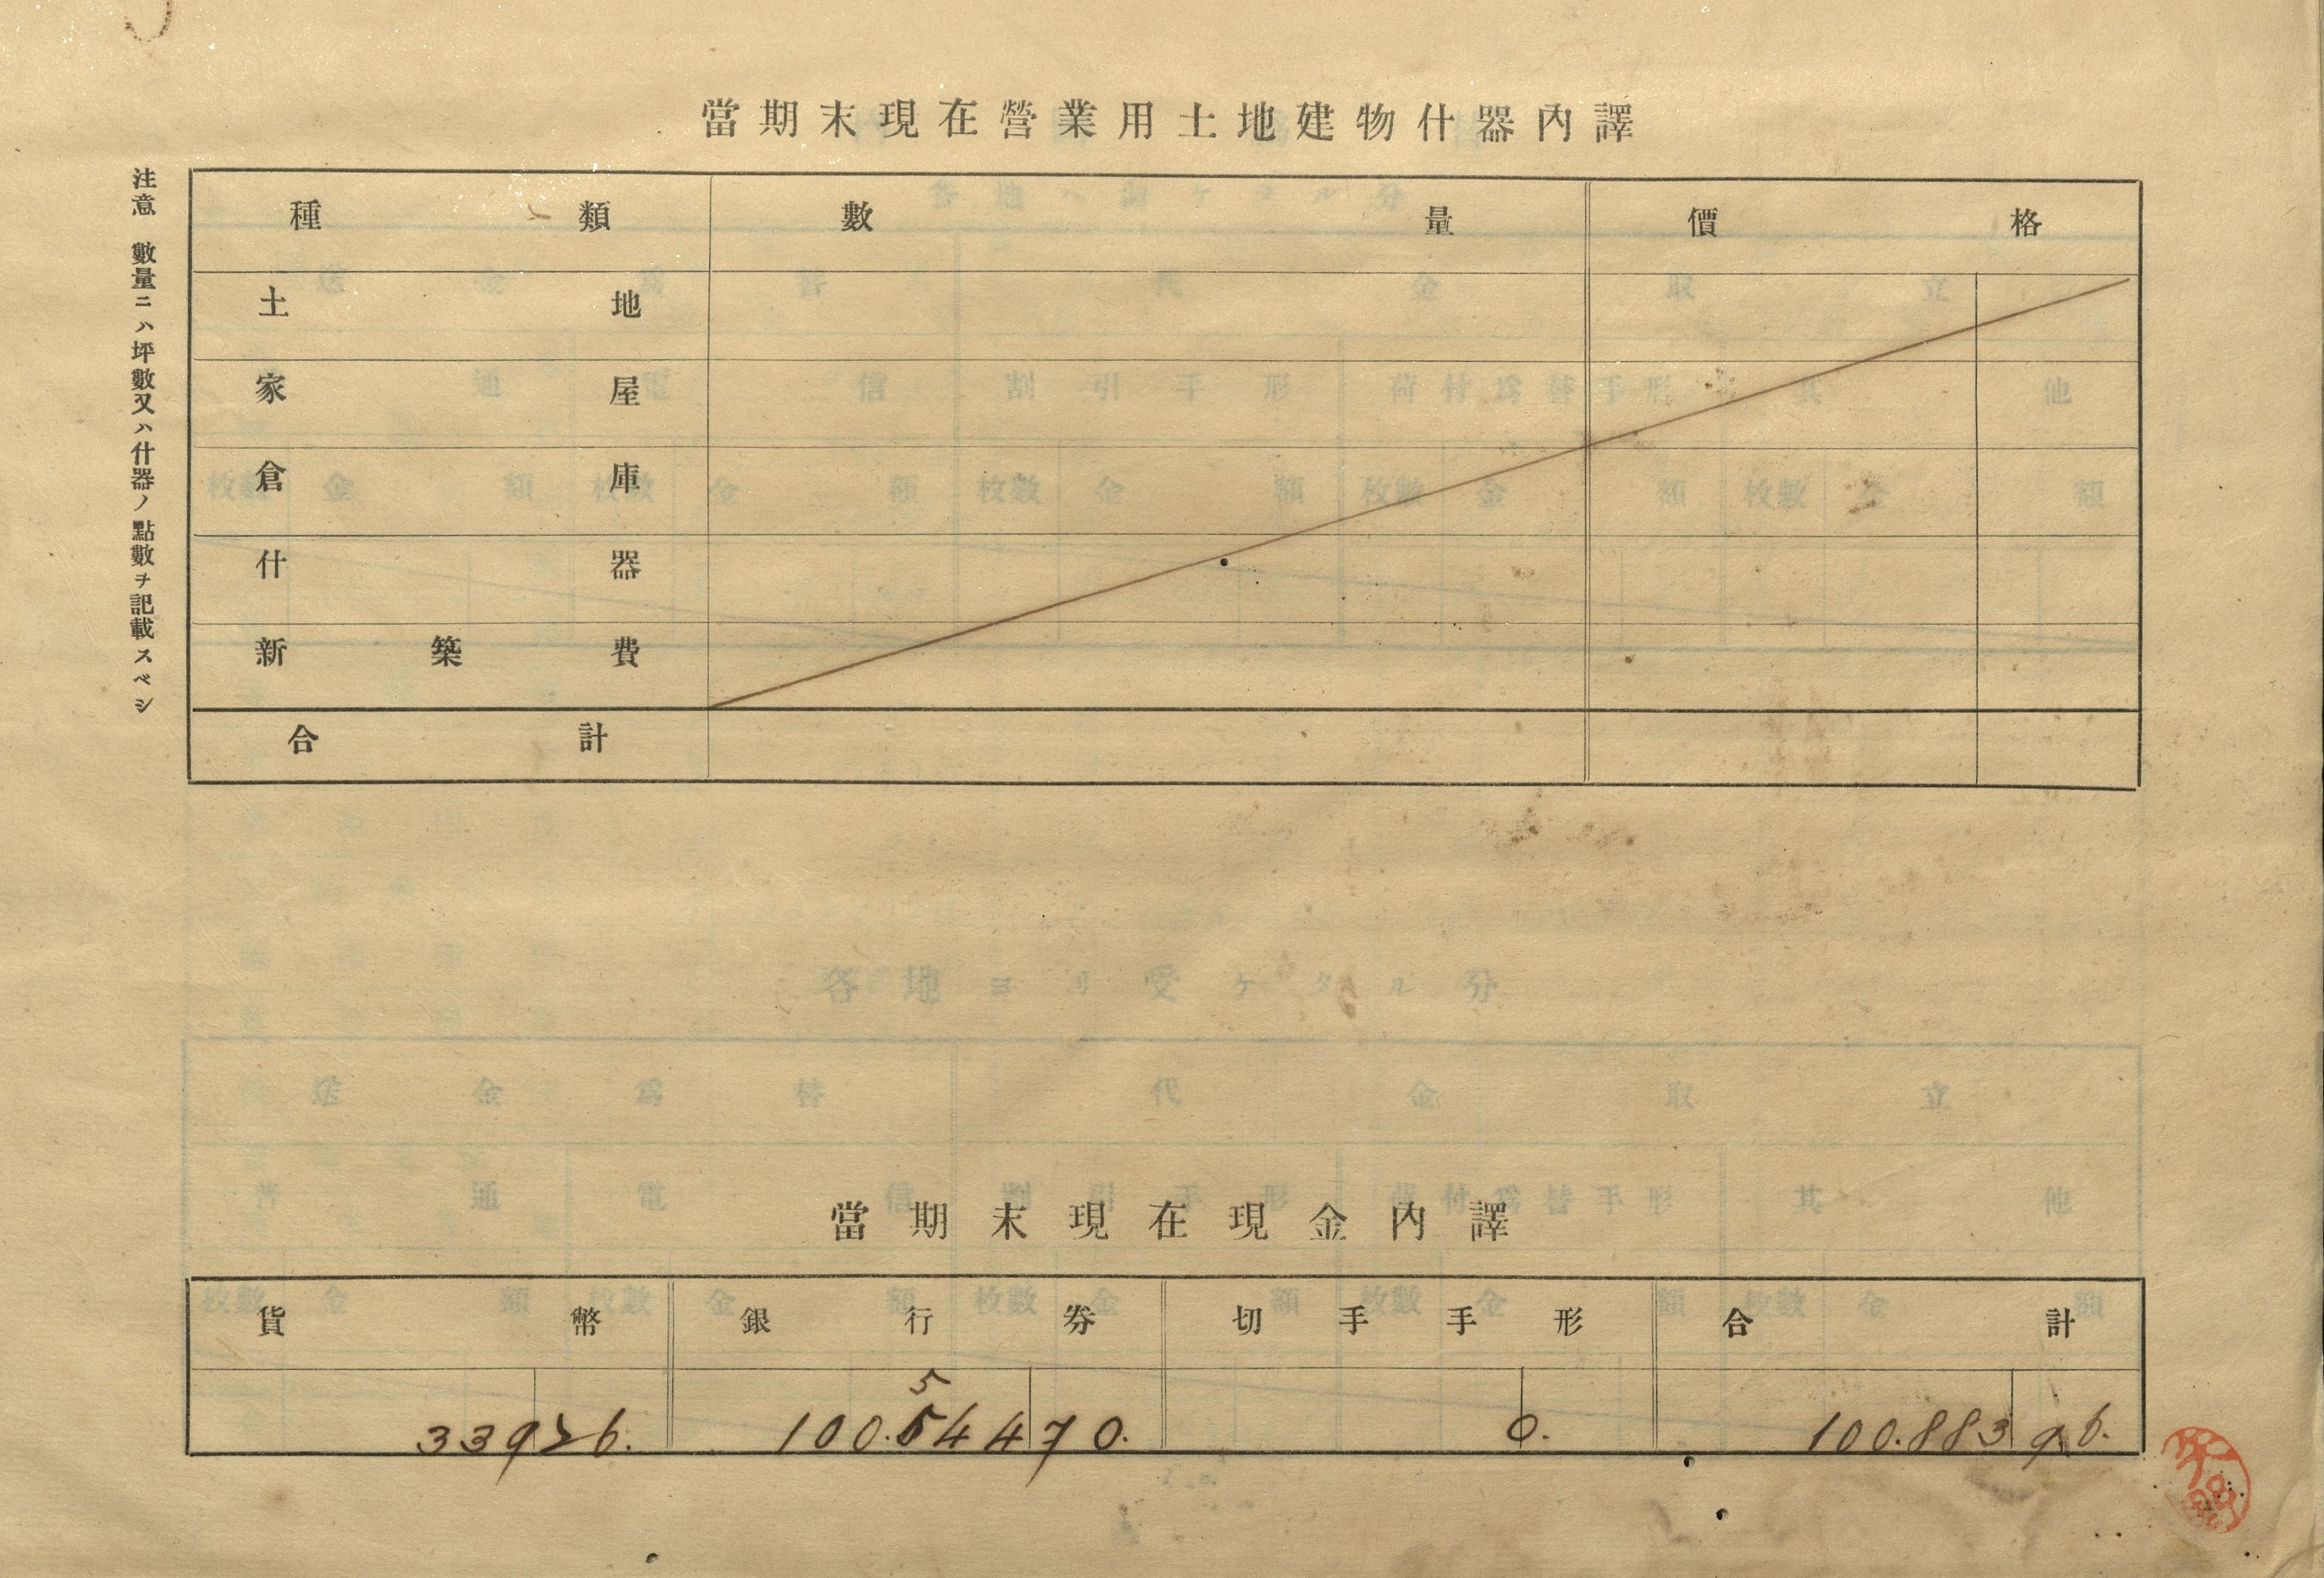 當期末現在營業用土地建物什器內譯
注意 數量ニハ坪數又ハ什器ノ點數ヲ記載スベシ
種類 數量 價格
土地
家屋
倉庫
什器
新築費
合計
當期末現在現金內譯
貨幣 銀行劵 切手手形 合計
5
339 26. 100.544 70. 0. 100.883 96.